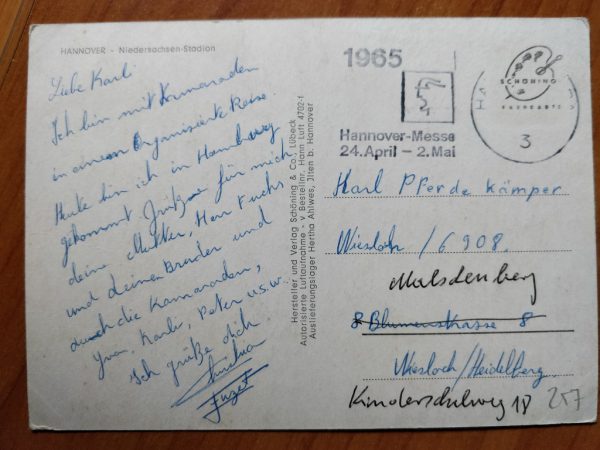 HANNOVER - Niedersachsen-Stadion
Liebe Karli
Ich bin mit Kamaraden
in einem Organisierte Reise.
Heute bin ich in Hamburg
gekommt. Grüße für mich
deine Mutter, Herr Fuchs
und deinen Bruder und
durch die Kamaraden,
Yvon, Karli, Peter u.s.w.
Ich grüße dich
Hersteller und Verlag Schöning & Co., Lübeck
Autorisierte Luftaufnahme - v Bestellnr. Hann Luft 4702-f
Auslieferungslager Hertha Ahlwes, Ilten b. Hannover
1965
Hannover-Messe
24. April - 2. Mai
SCHÖNING
3
Karl Pferdekämper
Wiesloch / 6908.
Malschenberg
8 Blumenstrasse 8
Wiesloch/Heidelberg.
Kinderschulweg 18
257